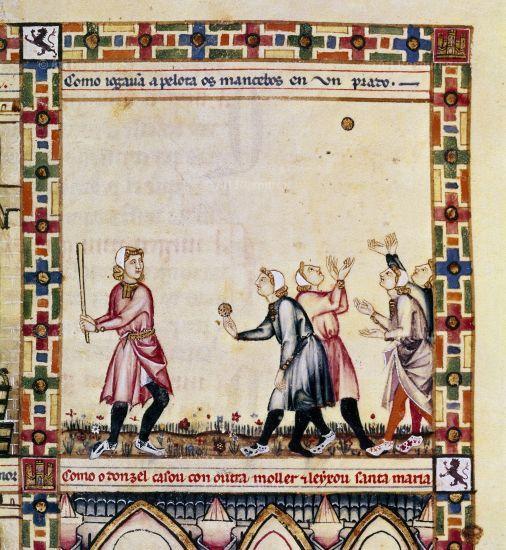 Como iogauã a pelota os mancebos en un prato.
Como o donzel casou con outra moller ⁊ leyxou santa maria